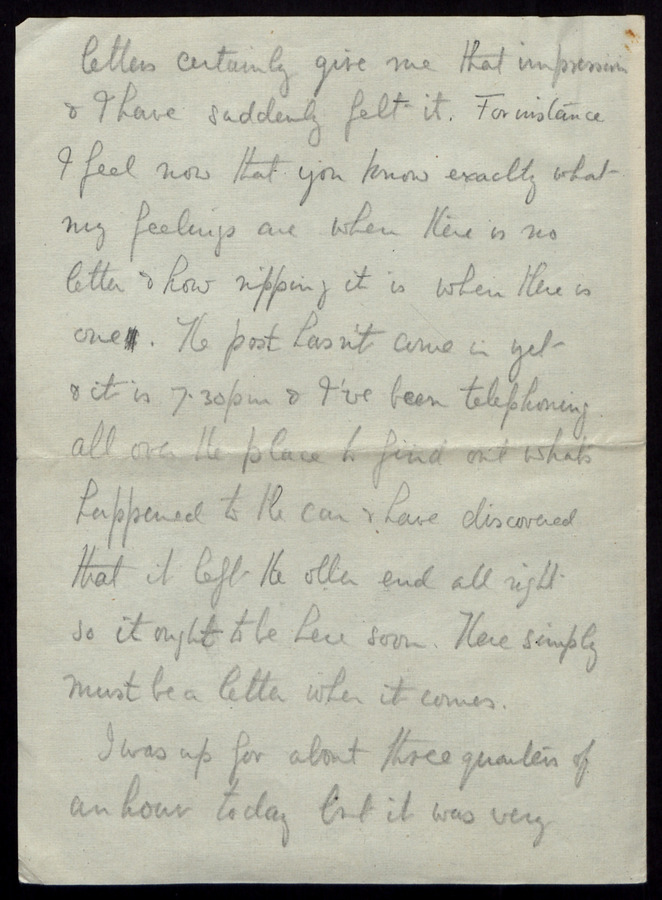 letters certainly give me that impression
& I have suddenly felt it. For instance
I feel now that you know exactly what
my feelings are when there is no
letter & how ripping it is when there is
one. The post hasn't come in yet
& it is 7.30pm & I've been telephoning
all over the place to find out what's
happened to the car & have discovered
that it left the other end all right
so it ought to be here soon. There simply
must be a letter when it comes.
I was up for about three quarters of
an hour today but it was very